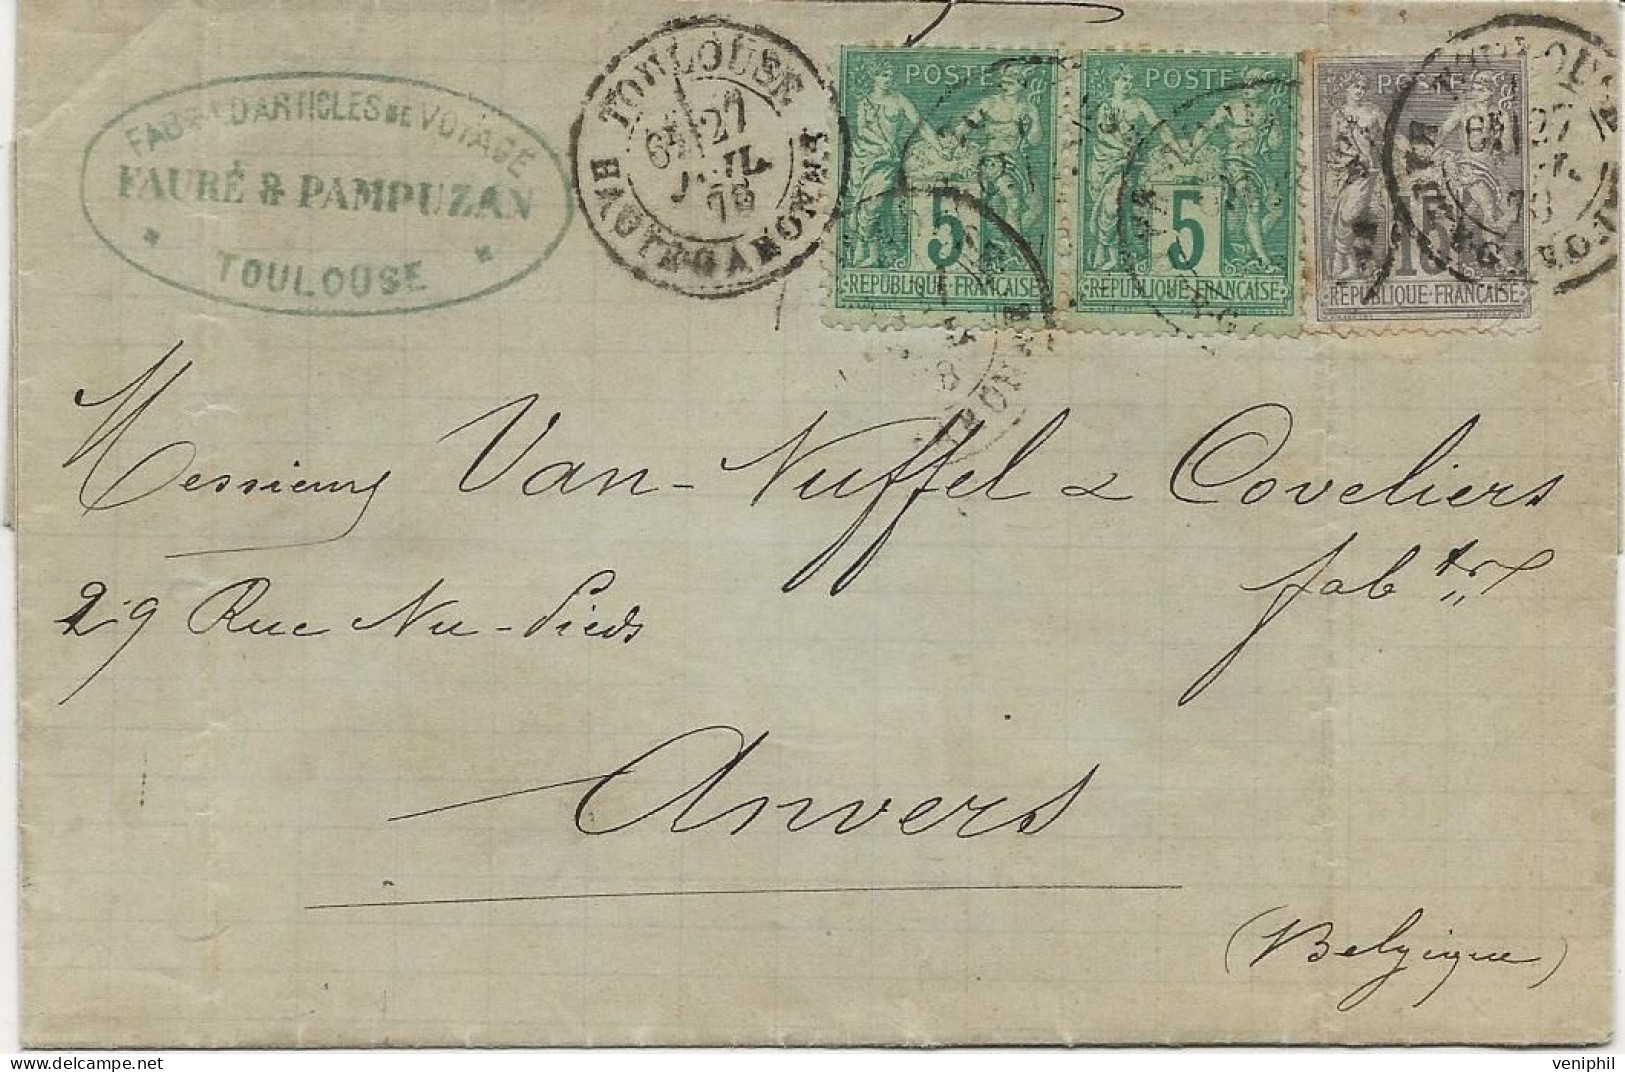 FABR. D'ARTICLES DE VOYAGE
FAURÉ & PAMPUZAN
TOULOUSE
TOULOUSE
6E 27
JUIL
78
HAUTE GARONNE
POSTE
5
REPUBLIQUE FRANCAISE
POSTE
5
REPUBLIQUE FRANCAISE
POSTE
15
REPUBLIQUE FRANCAISE
6E 27
78
Messieurs Van-Nuffel & Coveliers
fabts
29 Rue Nu-Pieds
Anvers
(Belgique)
veniphil